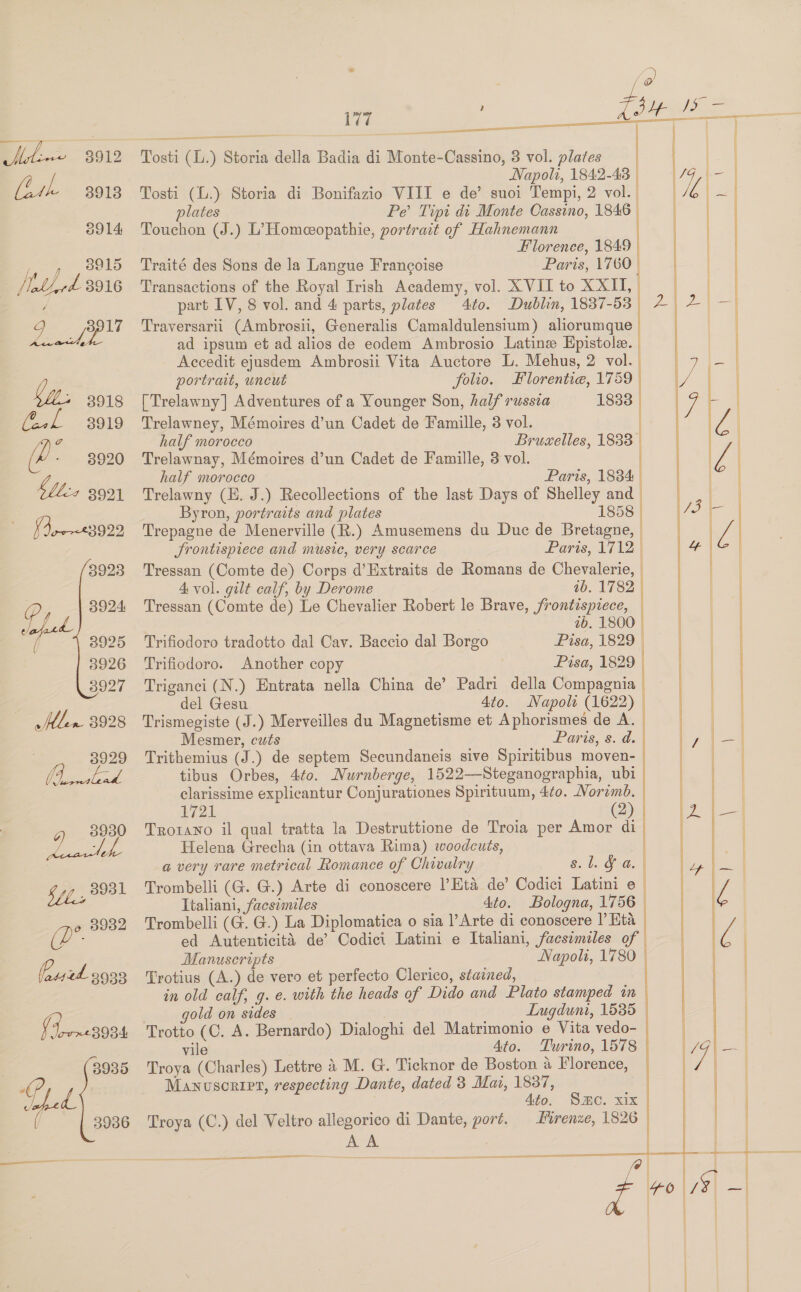 177
£34 15 -
3912 Tosti (L.) Storia della Badia di Monte-Cassino, 3 vol. plates
Napoli, 1842-43
3913 Tosti (L.) Storia di Bonifazio VIII e de’ suoi Tempi, 2 vol.
plates Pe’ Tipi di Monte Cassino, 1846
3914 Touchon (J.) L’Homœopathie, portrait of Hahnemann
Florence, 1849
3915 Traité des Sons de la Langue Françoise Paris, 1760
3916 Transactions of the Royal Irish Academy, vol. XVII to XXII,
part IV, 8 vol. and 4 parts, plates 4to. Dublin, 1837-53 2 2 -
3917 Traversarii (Ambrosii, Generalis Camaldulensium) aliorumque
ad ipsum et ad alios de eodem Ambrosio Latinæ Epistolæ.
Accedit ejusdem Ambrosii Vita Auctore L. Mehus, 2 vol.
portrait, uncut folio. Florentiæ, 1759 7 -
Ellis 3918 [Trelawny] Adventures of a Younger Son, half russia 1833 9 -
3919 Trelawney, Mémoires d’un Cadet de Famille, 3 vol.
half morocco Bruxelles, 1833 6
3920 Trelawnay, Mémoires d’un Cadet de Famille, 3 vol.
half morocco Paris, 1834 6
Ellis 3921 Trelawny (E. J.) Recollections of the last Days of Shelley and
Byron, portraits and plates 1858 13 -
Boone 3922 Trepagne de Menerville (R.) Amusemens du Duc de Bretagne,
frontispiece and music, very scarce Paris, 1712 4 6
3923 Tressan (Comte de) Corps d’Extraits de Romans de Chevalerie,
4 vol. gilt calf, by Derome ib. 1782
3924 Tressan (Comte de) Le Chevalier Robert le Brave, frontispiece,
ib. 1800
3925 Trifiodoro tradotto dal Cav. Baccio dal Borgo Pisa, 1829
3926 Trifiodoro. Another copy Pisa, 1829
3927 Triganci (N.) Entrata nella China de’ Padri della Compagnia
del Gesu 4to. Napoli (1622)
Allen 3928 Trismegiste (J.) Merveilles du Magnetisme et Aphorismes de A.
Mesmer, cuts Paris, s. d. 1 -
3929 Trithemius (J.) de septem Secundaneis sive Spiritibus moven-
tibus Orbes, 4to. Nurnberge, 1522—Steganographia, ubi
clarissime explicantur Conjurationes Spirituum, 4to. Norimb.
1721 (2) 2 -
3930 Troiano il qual tratta la Destruttione de Troia per Amor di
Helena Grecha (in ottava Rima) woodcuts,
a very rare metrical Romance of Chivalry s. l. & a. 4 -
Ellis 3931 Trombelli (G. G.) Arte di conoscere l’Età de’ Codici Latini e
Italiani, facsimiles 4to. Bologna, 1756 6
Do 3932 Trombelli (G. G.) La Diplomatica o sia l’Arte di conoscere l’Età
ed Autenticità de’ Codici Latini e Italiani, facsimiles of
Manuscripts Napoli, 1780 6
Passed 3933 Trotius (A.) de vero et perfecto Clerico, stained,
in old calf, g. e. with the heads of Dido and Plato stamped in
gold on sides Lugduni, 1535
Boone 3934 Trotto (C. A. Bernardo) Dialoghi del Matrimonio e Vita vedo-
vile 4to. Turino, 1578 19 -
3935 Troya (Charles) Lettre à M. G. Ticknor de Boston à Florence,
Manuscript, respecting Dante, dated 3 Mai, 1837,
4to. Sæc. xix
3936 Troya (C.) del Veltro allegorico di Dante, port. Firenze, 1826
A A
£ 40 18 -